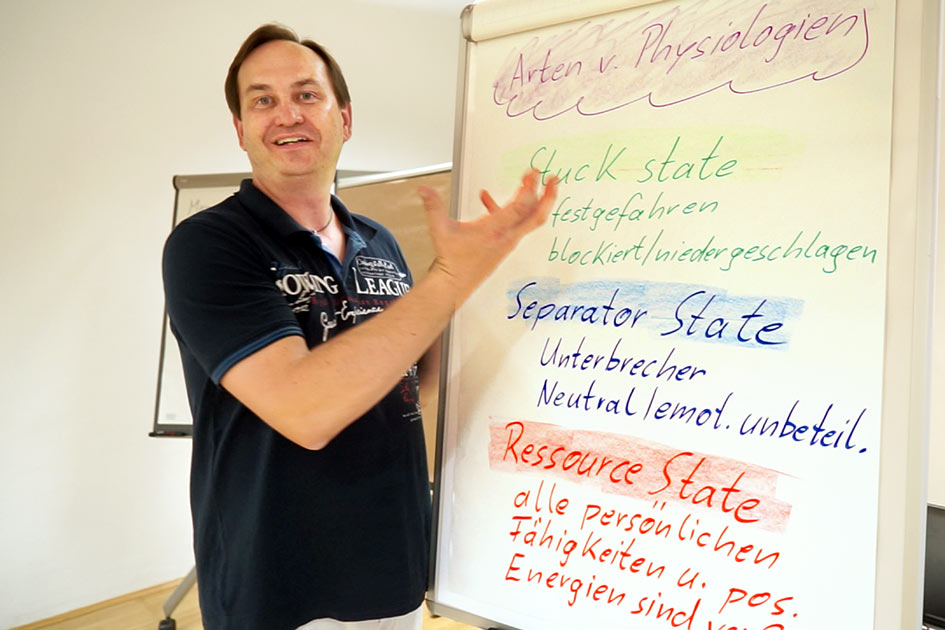 Arten v. Physiologien
Stuck state
festgefahren
blockiert/niedergeschlagen
Separator State
Unterbrecher
Neutral/emot. unbeteil.
Ressource State
alle persönlichen
Fähigkeiten u. pos.
Energien sind
LEAGUE